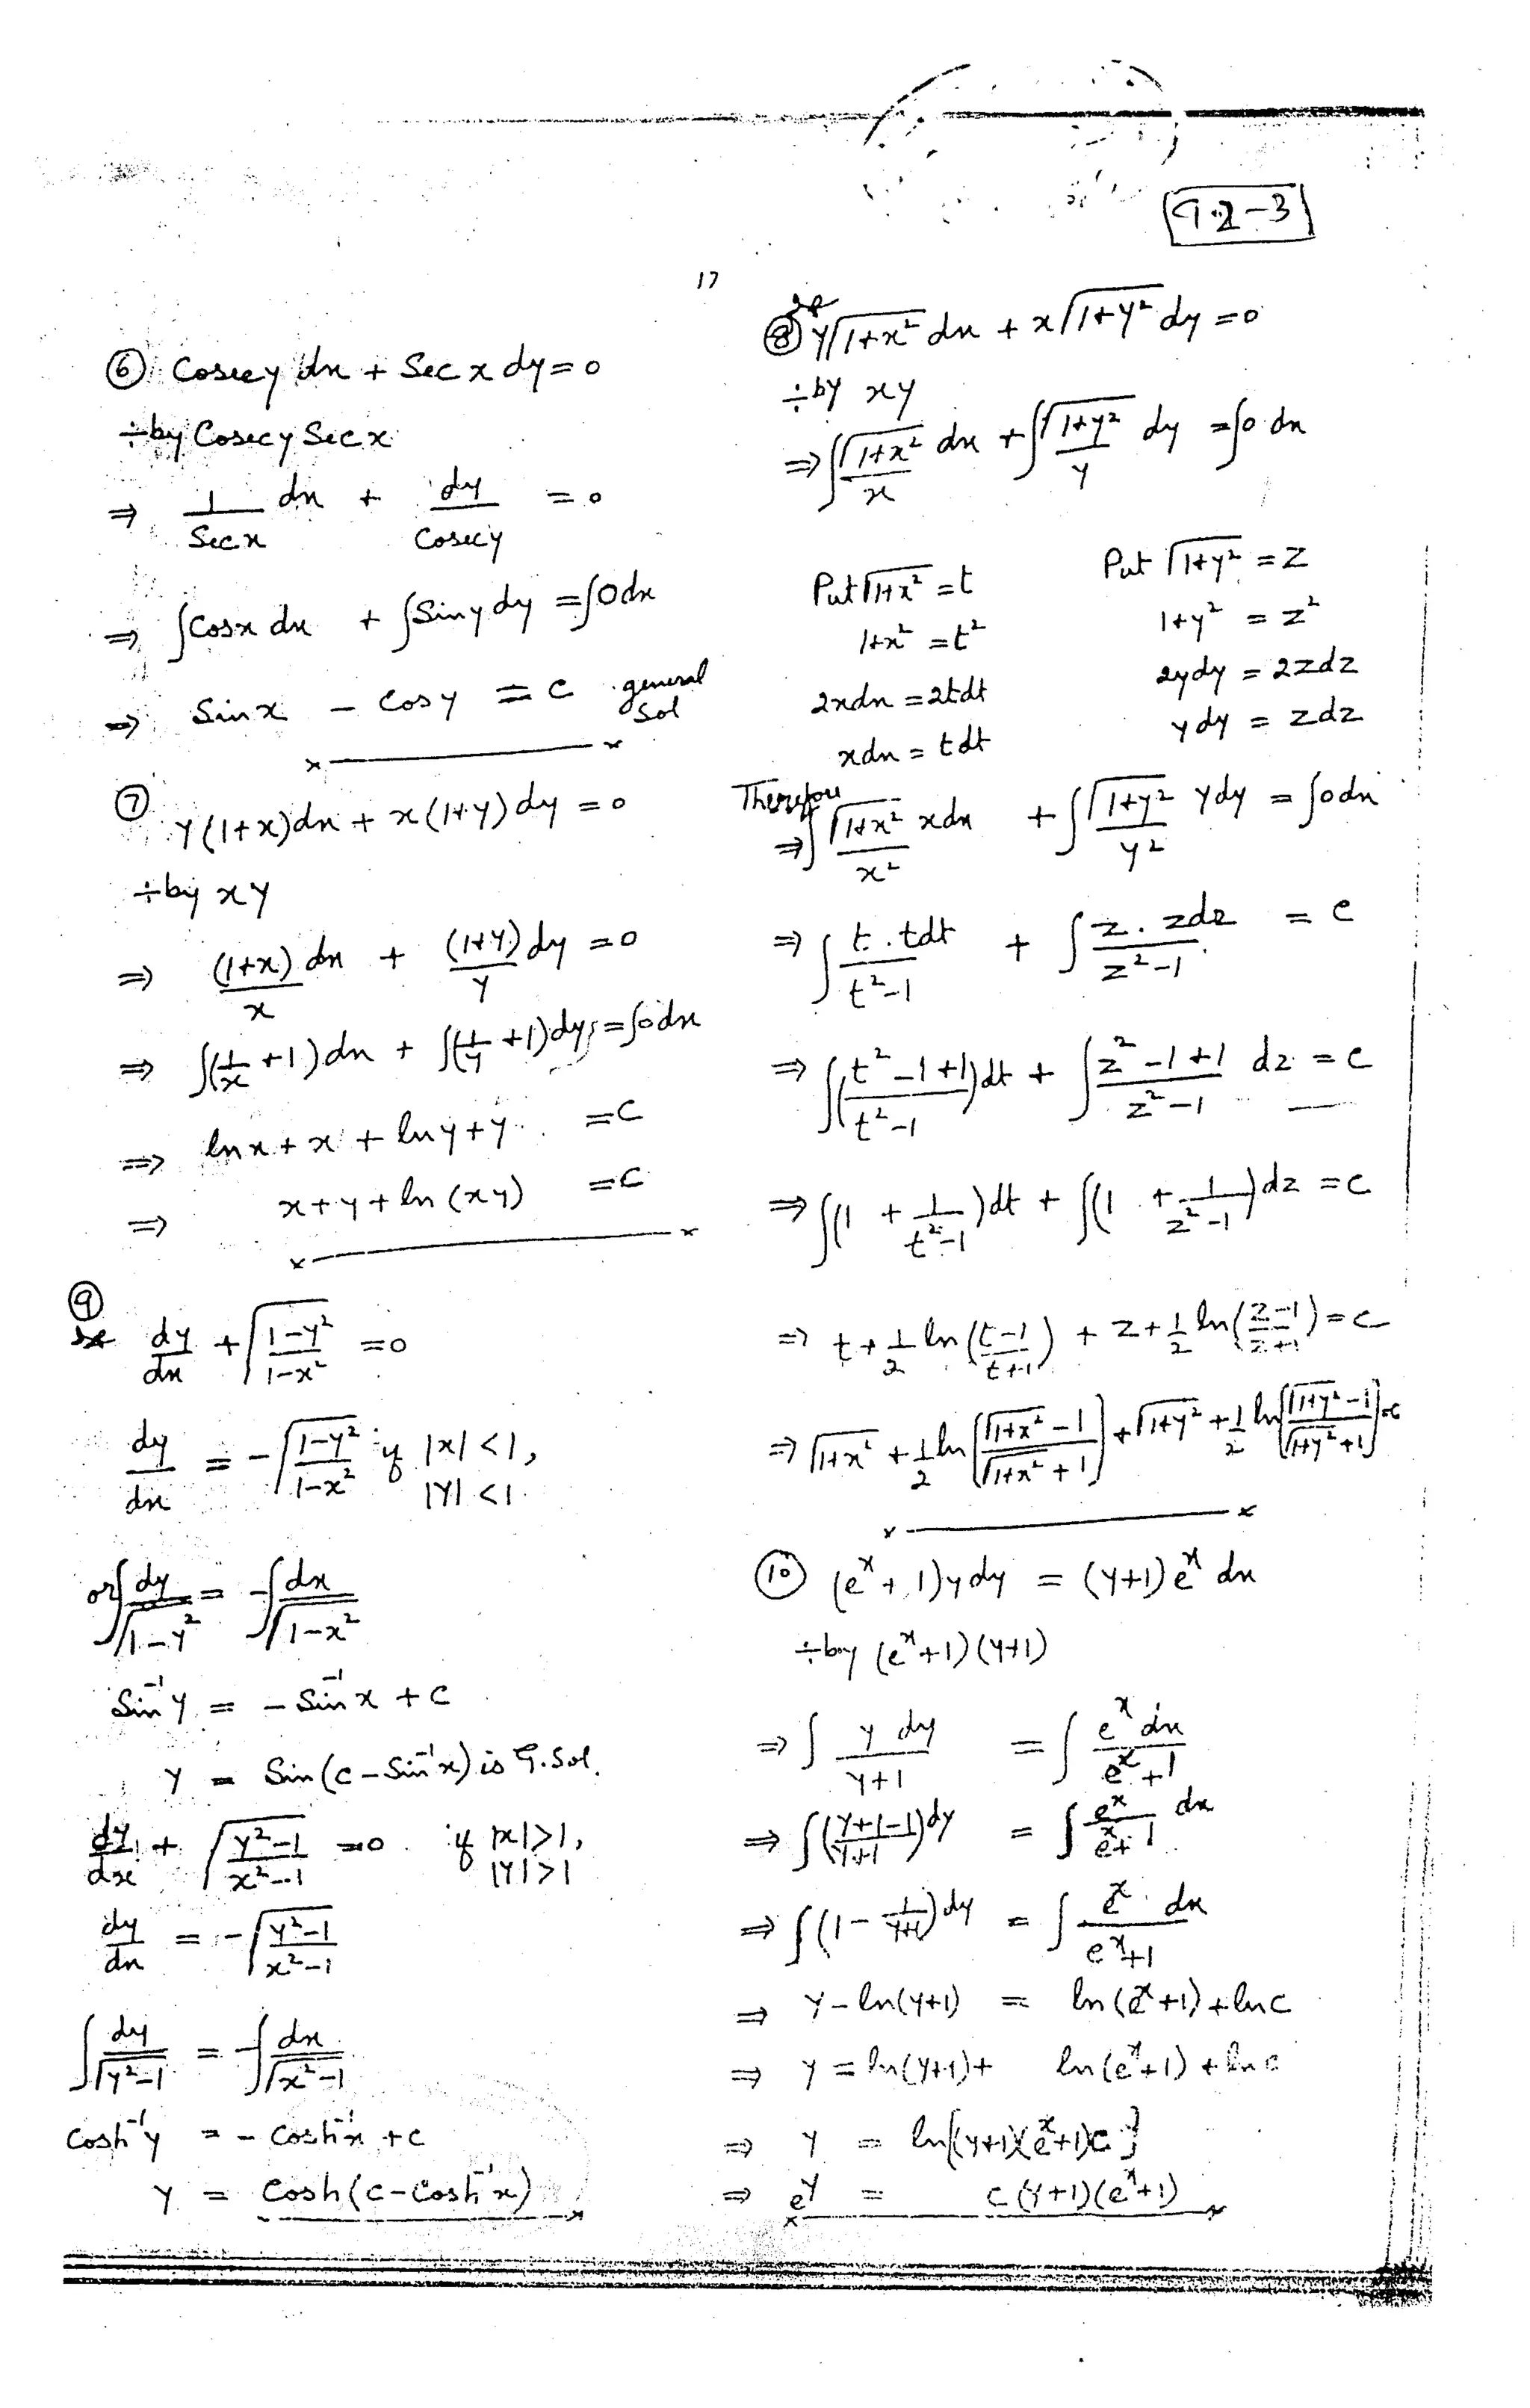 9.2-3
17
⑥ Cosec y dx + Sec x dy = 0
÷ by Cosec y Sec x
⇒ 1/Sec x dx + dy/Cosec y = 0
⇒ ∫Cos x dx + ∫Sin y dy = ∫0 dx
⇒ Sin x - Cos y = C general Sol
⑦ y(1+x)dx + x(1+y)dy = 0
÷ by xy
⇒ (1+x)/x dx + (1+y)/y dy = 0
⇒ ∫(1/x + 1)dx + ∫(1/y + 1)dy = ∫0 dx
⇒ ln x + x + ln y + y = C
⇒ x + y + ln(xy) = C
⑨
dy/dx + √((1-y²)/(1-x²)) = 0
dy/dx = -√((1-y²)/(1-x²)) if |x| < 1, |y| < 1
or ∫dy/√(1-y²) = -∫dx/√(1-x²)
Sin⁻¹y = - Sin⁻¹x + C
y = Sin(C - Sin⁻¹x) is G.Sol.
dy/dx + √((y²-1)/(x²-1)) = 0 if |x| > 1, |y| > 1
dy/dx = -√((y²-1)/(x²-1))
∫dy/√(y²-1) = -∫dx/√(x²-1)
Cosh⁻¹y = - Cosh⁻¹x + C
y = Cosh(C - Cosh⁻¹x)
⑧ y√(1+x²) dx + x√(1+y²) dy = 0
÷ by xy
⇒ ∫√(1+x²)/x dx + ∫√(1+y²)/y dy = ∫0 dx
Put √(1+x²) = t Put √(1+y²) = z
1+x² = t² 1+y² = z²
2x dx = 2t dt 2y dy = 2z dz
x dx = t dt y dy = z dz
Therefore
⇒ ∫√(1+x²)/x² x dx + ∫√(1+y²)/y² y dy = ∫0 dx
⇒ ∫t.t dt/(t²-1) + ∫z.z dz/(z²-1) = C
⇒ ∫((t²-1+1)/(t²-1))dt + ∫(z²-1+1)/(z²-1) dz = C
⇒ ∫(1 + 1/(t²-1))dt + ∫(1 + 1/(z²-1))dz = C
⇒ t + 1/2 ln((t-1)/(t+1)) + z + 1/2 ln((z-1)/(z+1)) = C
⇒ √(1+x²) + 1/2 ln[(√(1+x²)-1)/(√(1+x²)+1)] + √(1+y²) + 1/2 ln[(√(1+y²)-1)/(√(1+y²)+1)] = C
⑩ (eˣ+1)y dy = (y+1)eˣ dx
÷ by (eˣ+1)(y+1)
⇒ ∫y dy/(y+1) = ∫eˣ dx/(eˣ+1)
⇒ ∫((y+1-1)/(y+1))dy = ∫eˣ/(eˣ+1) dx
⇒ ∫(1 - 1/(y+1))dy = ∫eˣ dx/(eˣ+1)
⇒ y - ln(y+1) = ln(eˣ+1) + ln C
⇒ y = ln(y+1) + ln(eˣ+1) + ln C
⇒ y = ln{(y+1)(eˣ+1)C}
⇒ eʸ = C(y+1)(eˣ+1)